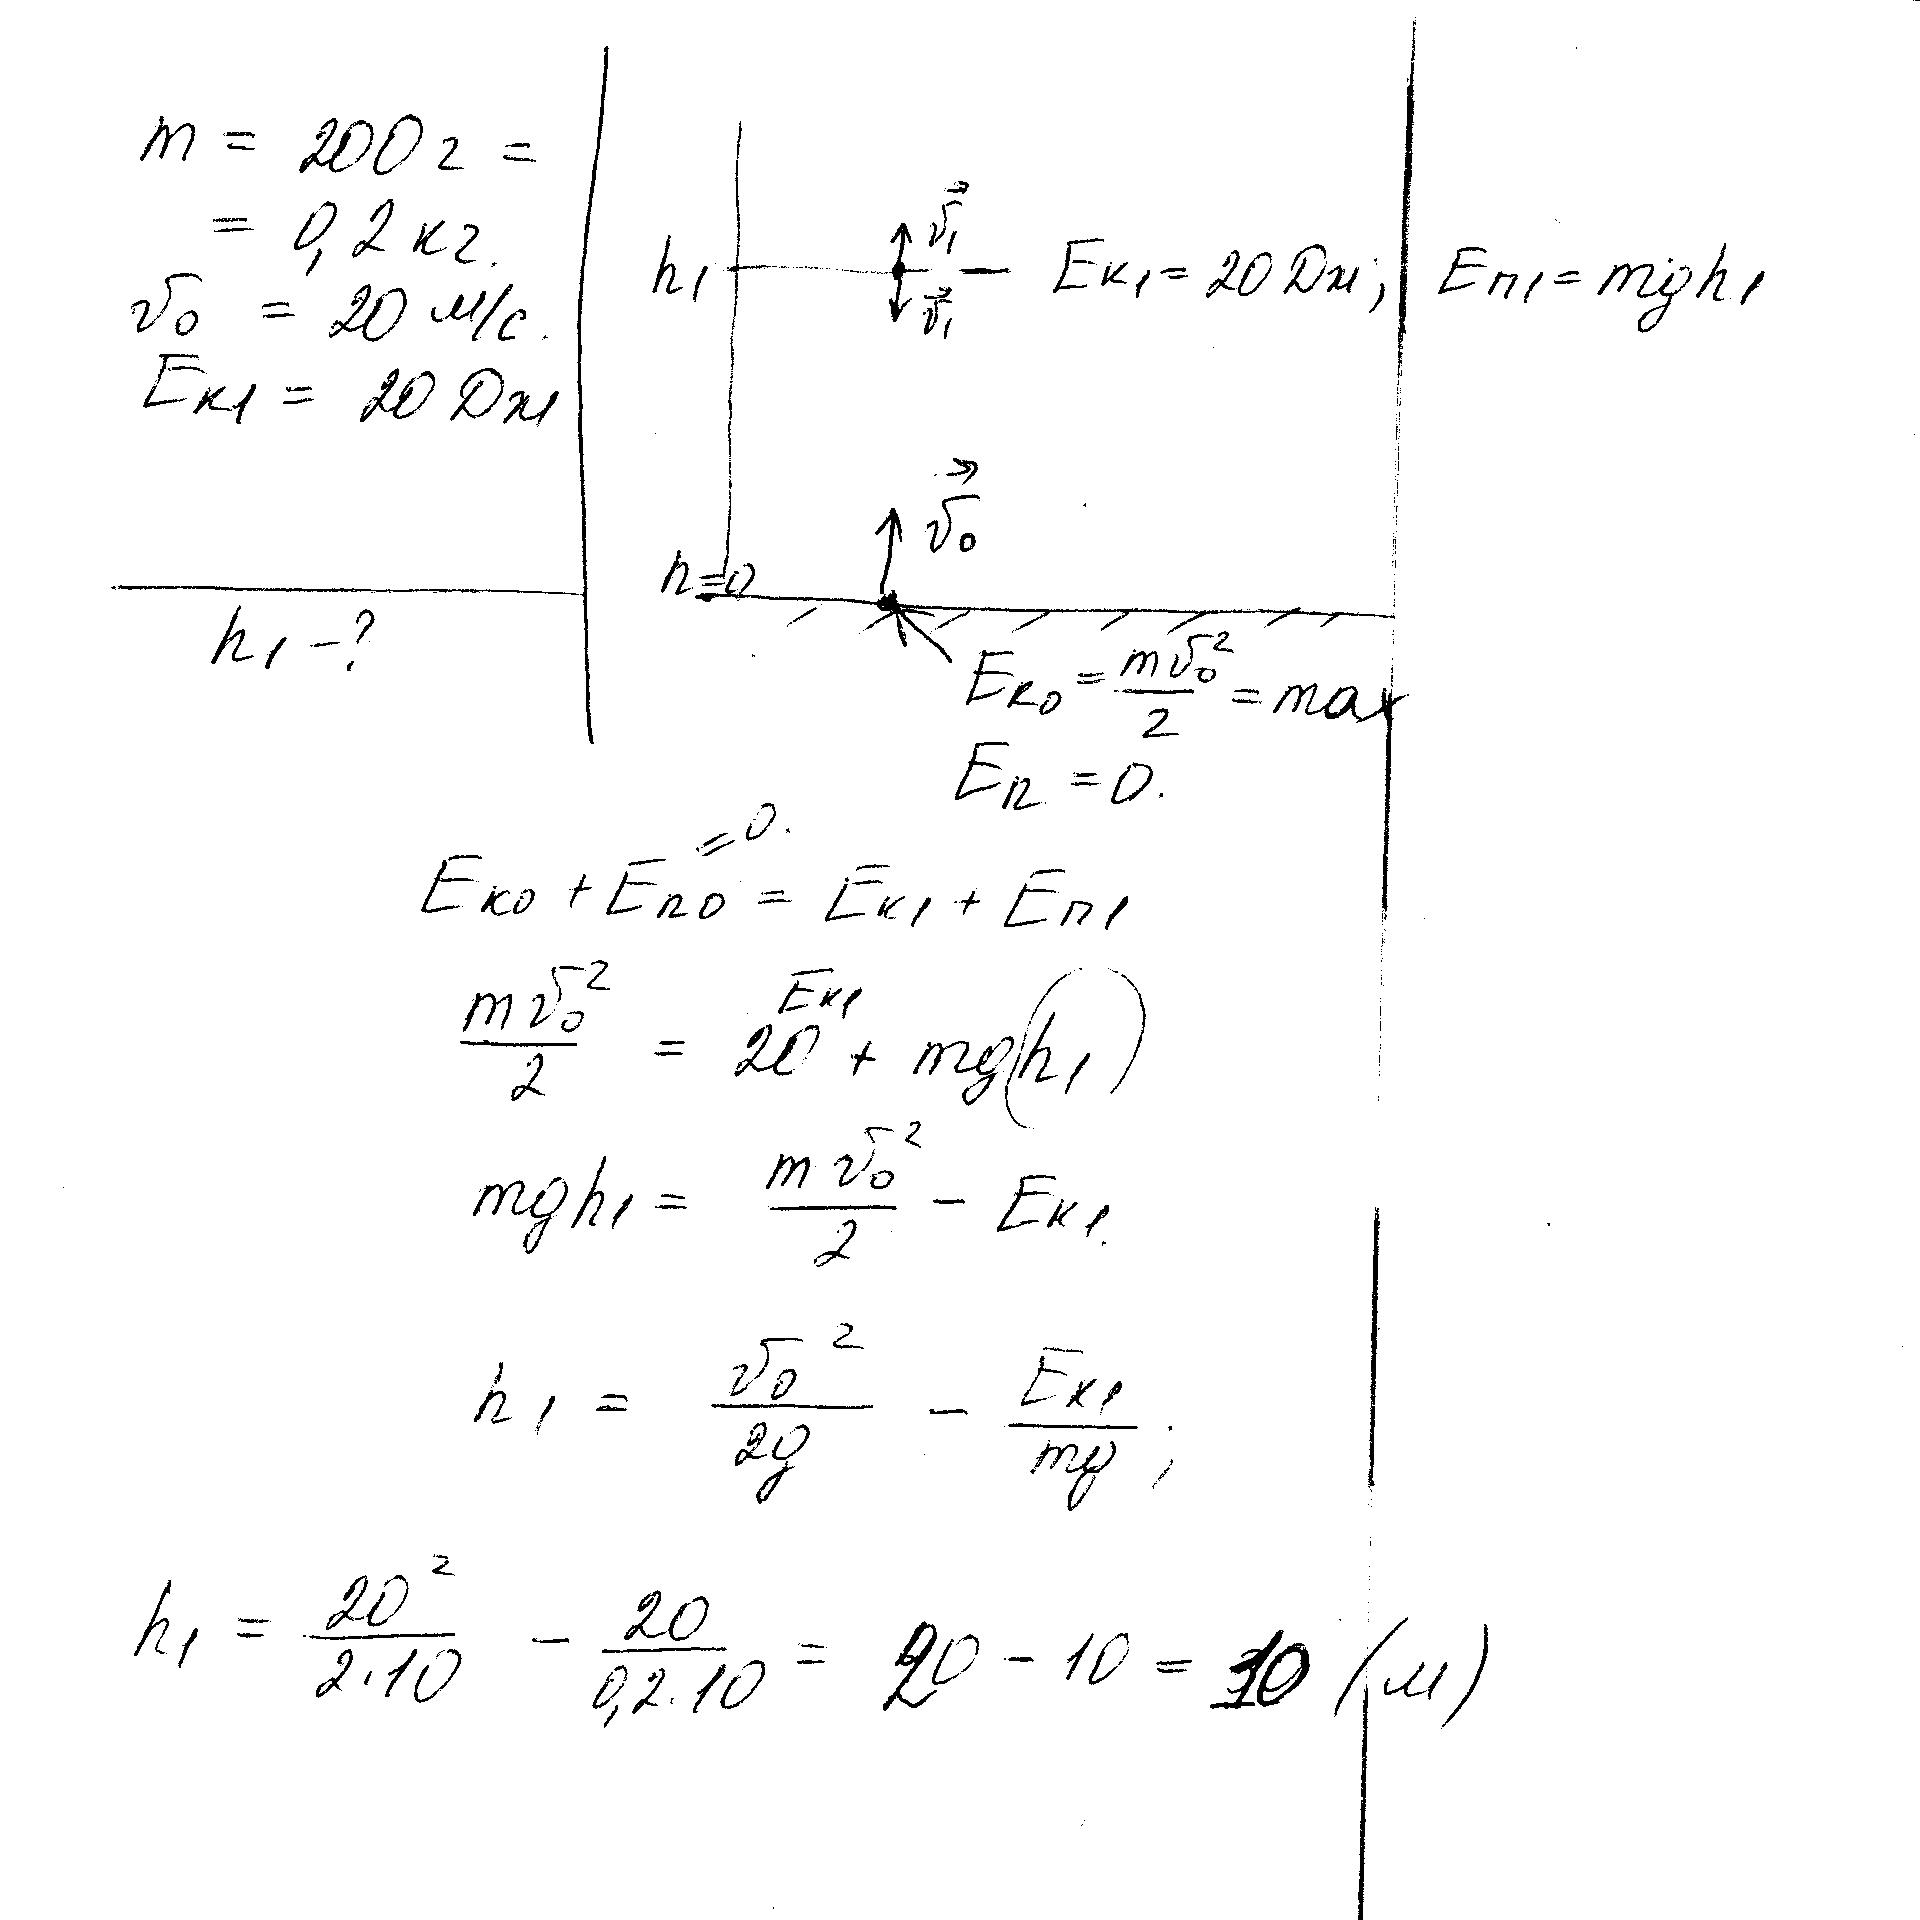 m = 200 г =
= 0,2 кг.
v₀ = 20 м/с.
Eк1 = 20 Дж
h₁ - ?
v⃗₁
h₁
v⃗₁
Eк1 = 20 Дж; Eп1 = mgh₁
v⃗₀
h=0
Eк0 = mv₀²/2 = max
Eп = 0.
= 0.
Eк0 + Eп0 = Eк1 + Eп1
Eк1
mv₀²/2 = 20 + mg(h₁)
mgh₁ = mv₀²/2 - Eк1.
h₁ = v₀²/2g - Eк1/mg;
h₁ = 20²/2·10 - 20/0,2·10 = 20 - 10 = 10 (м)